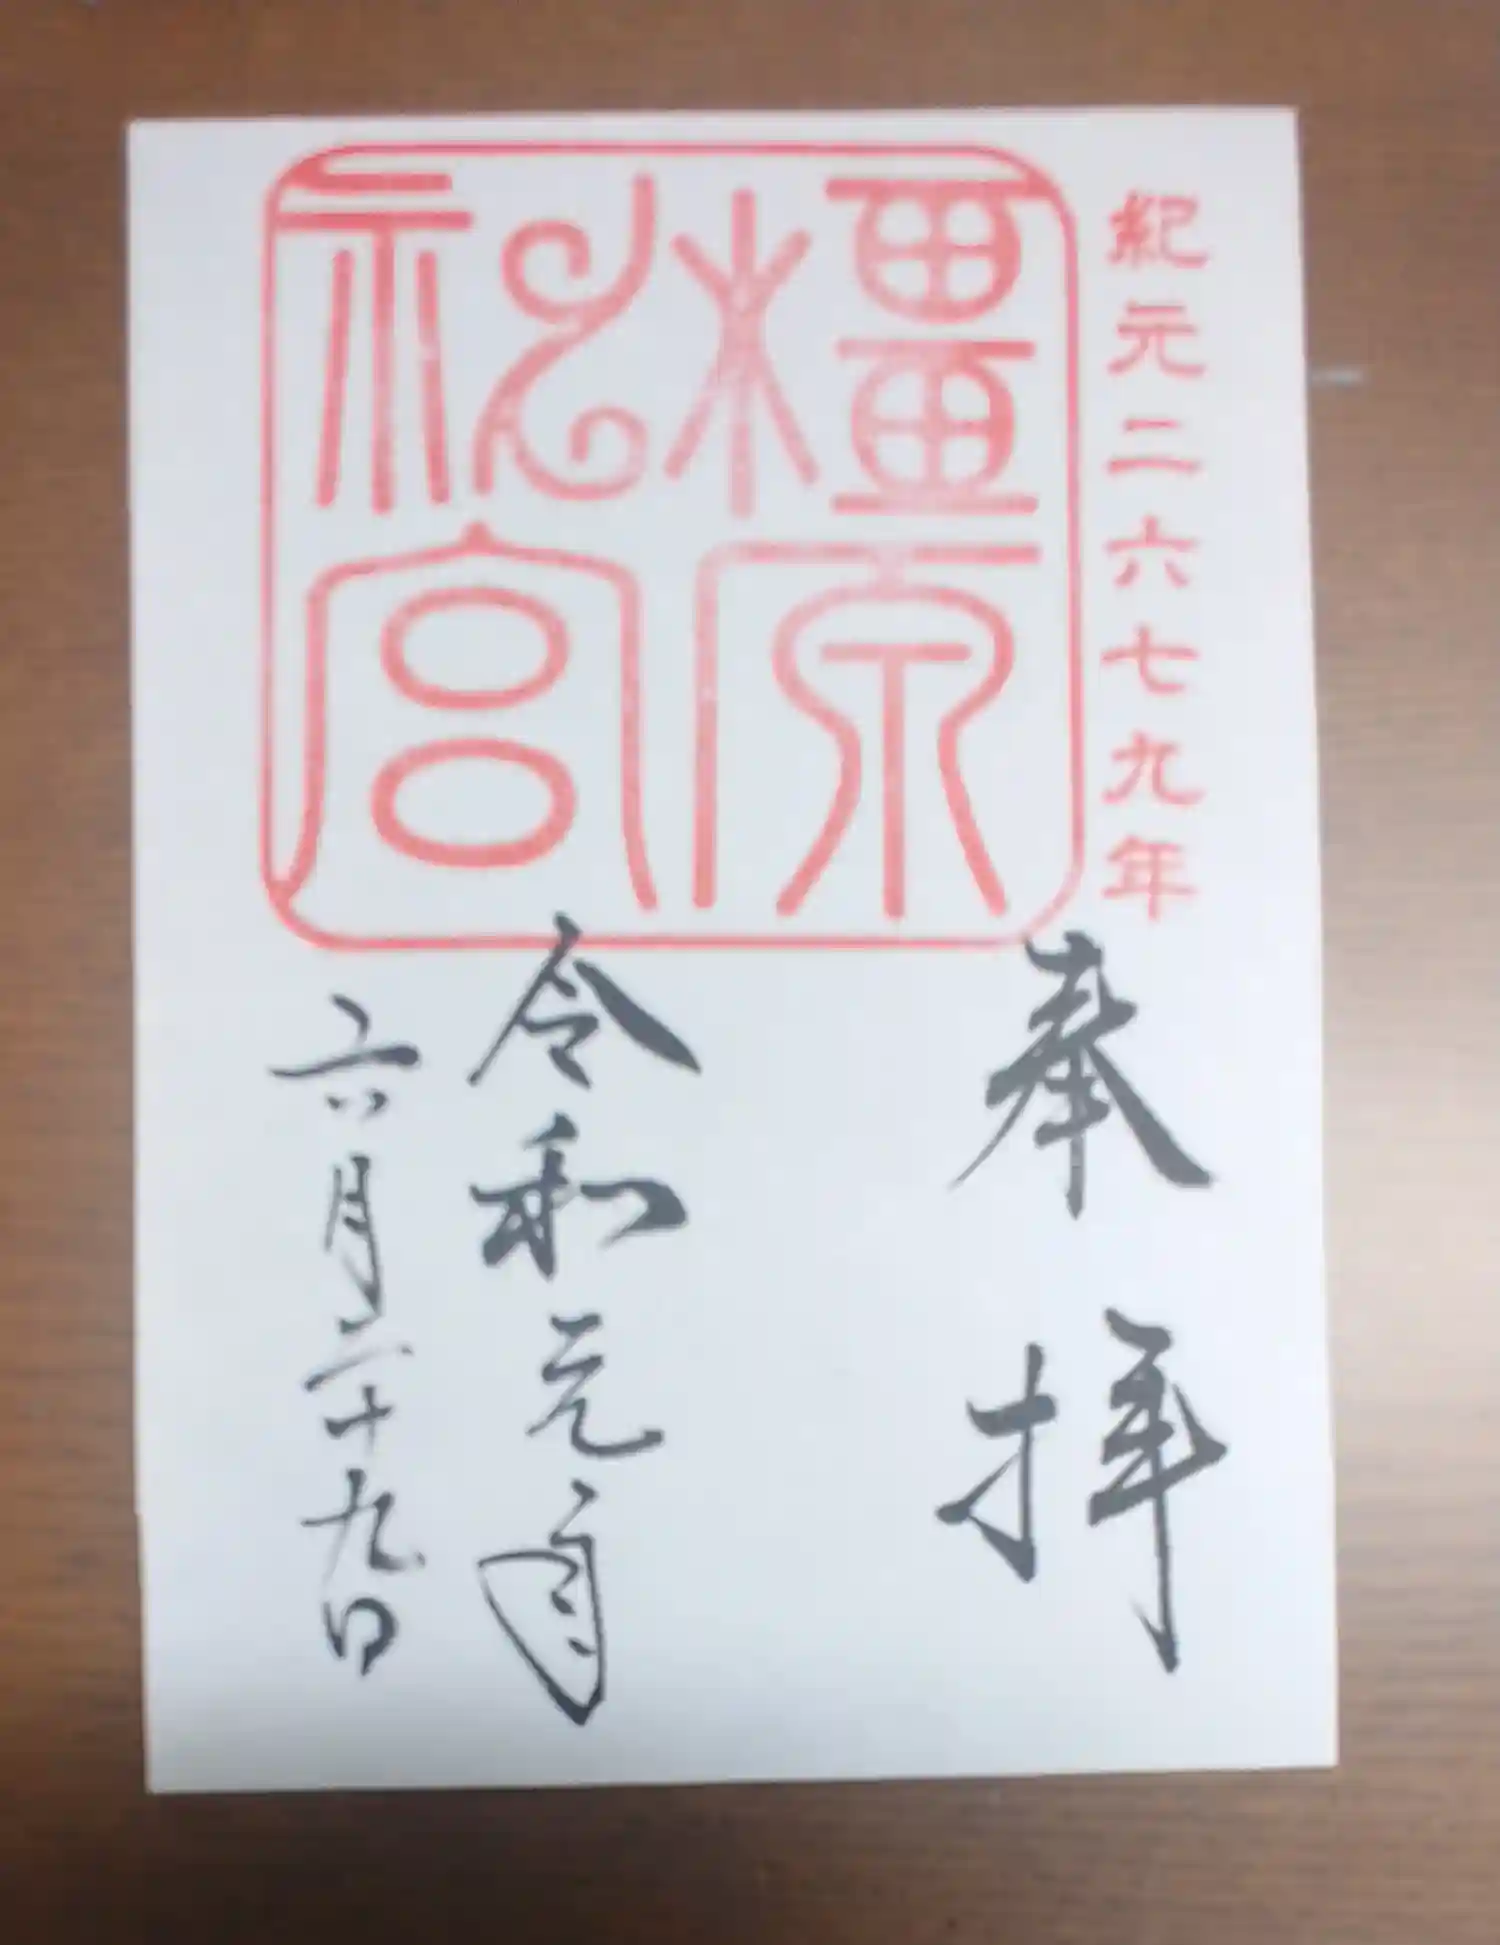 紀元二六七九年
奉拝
橿原
神宮
令和元年
六月二十九日